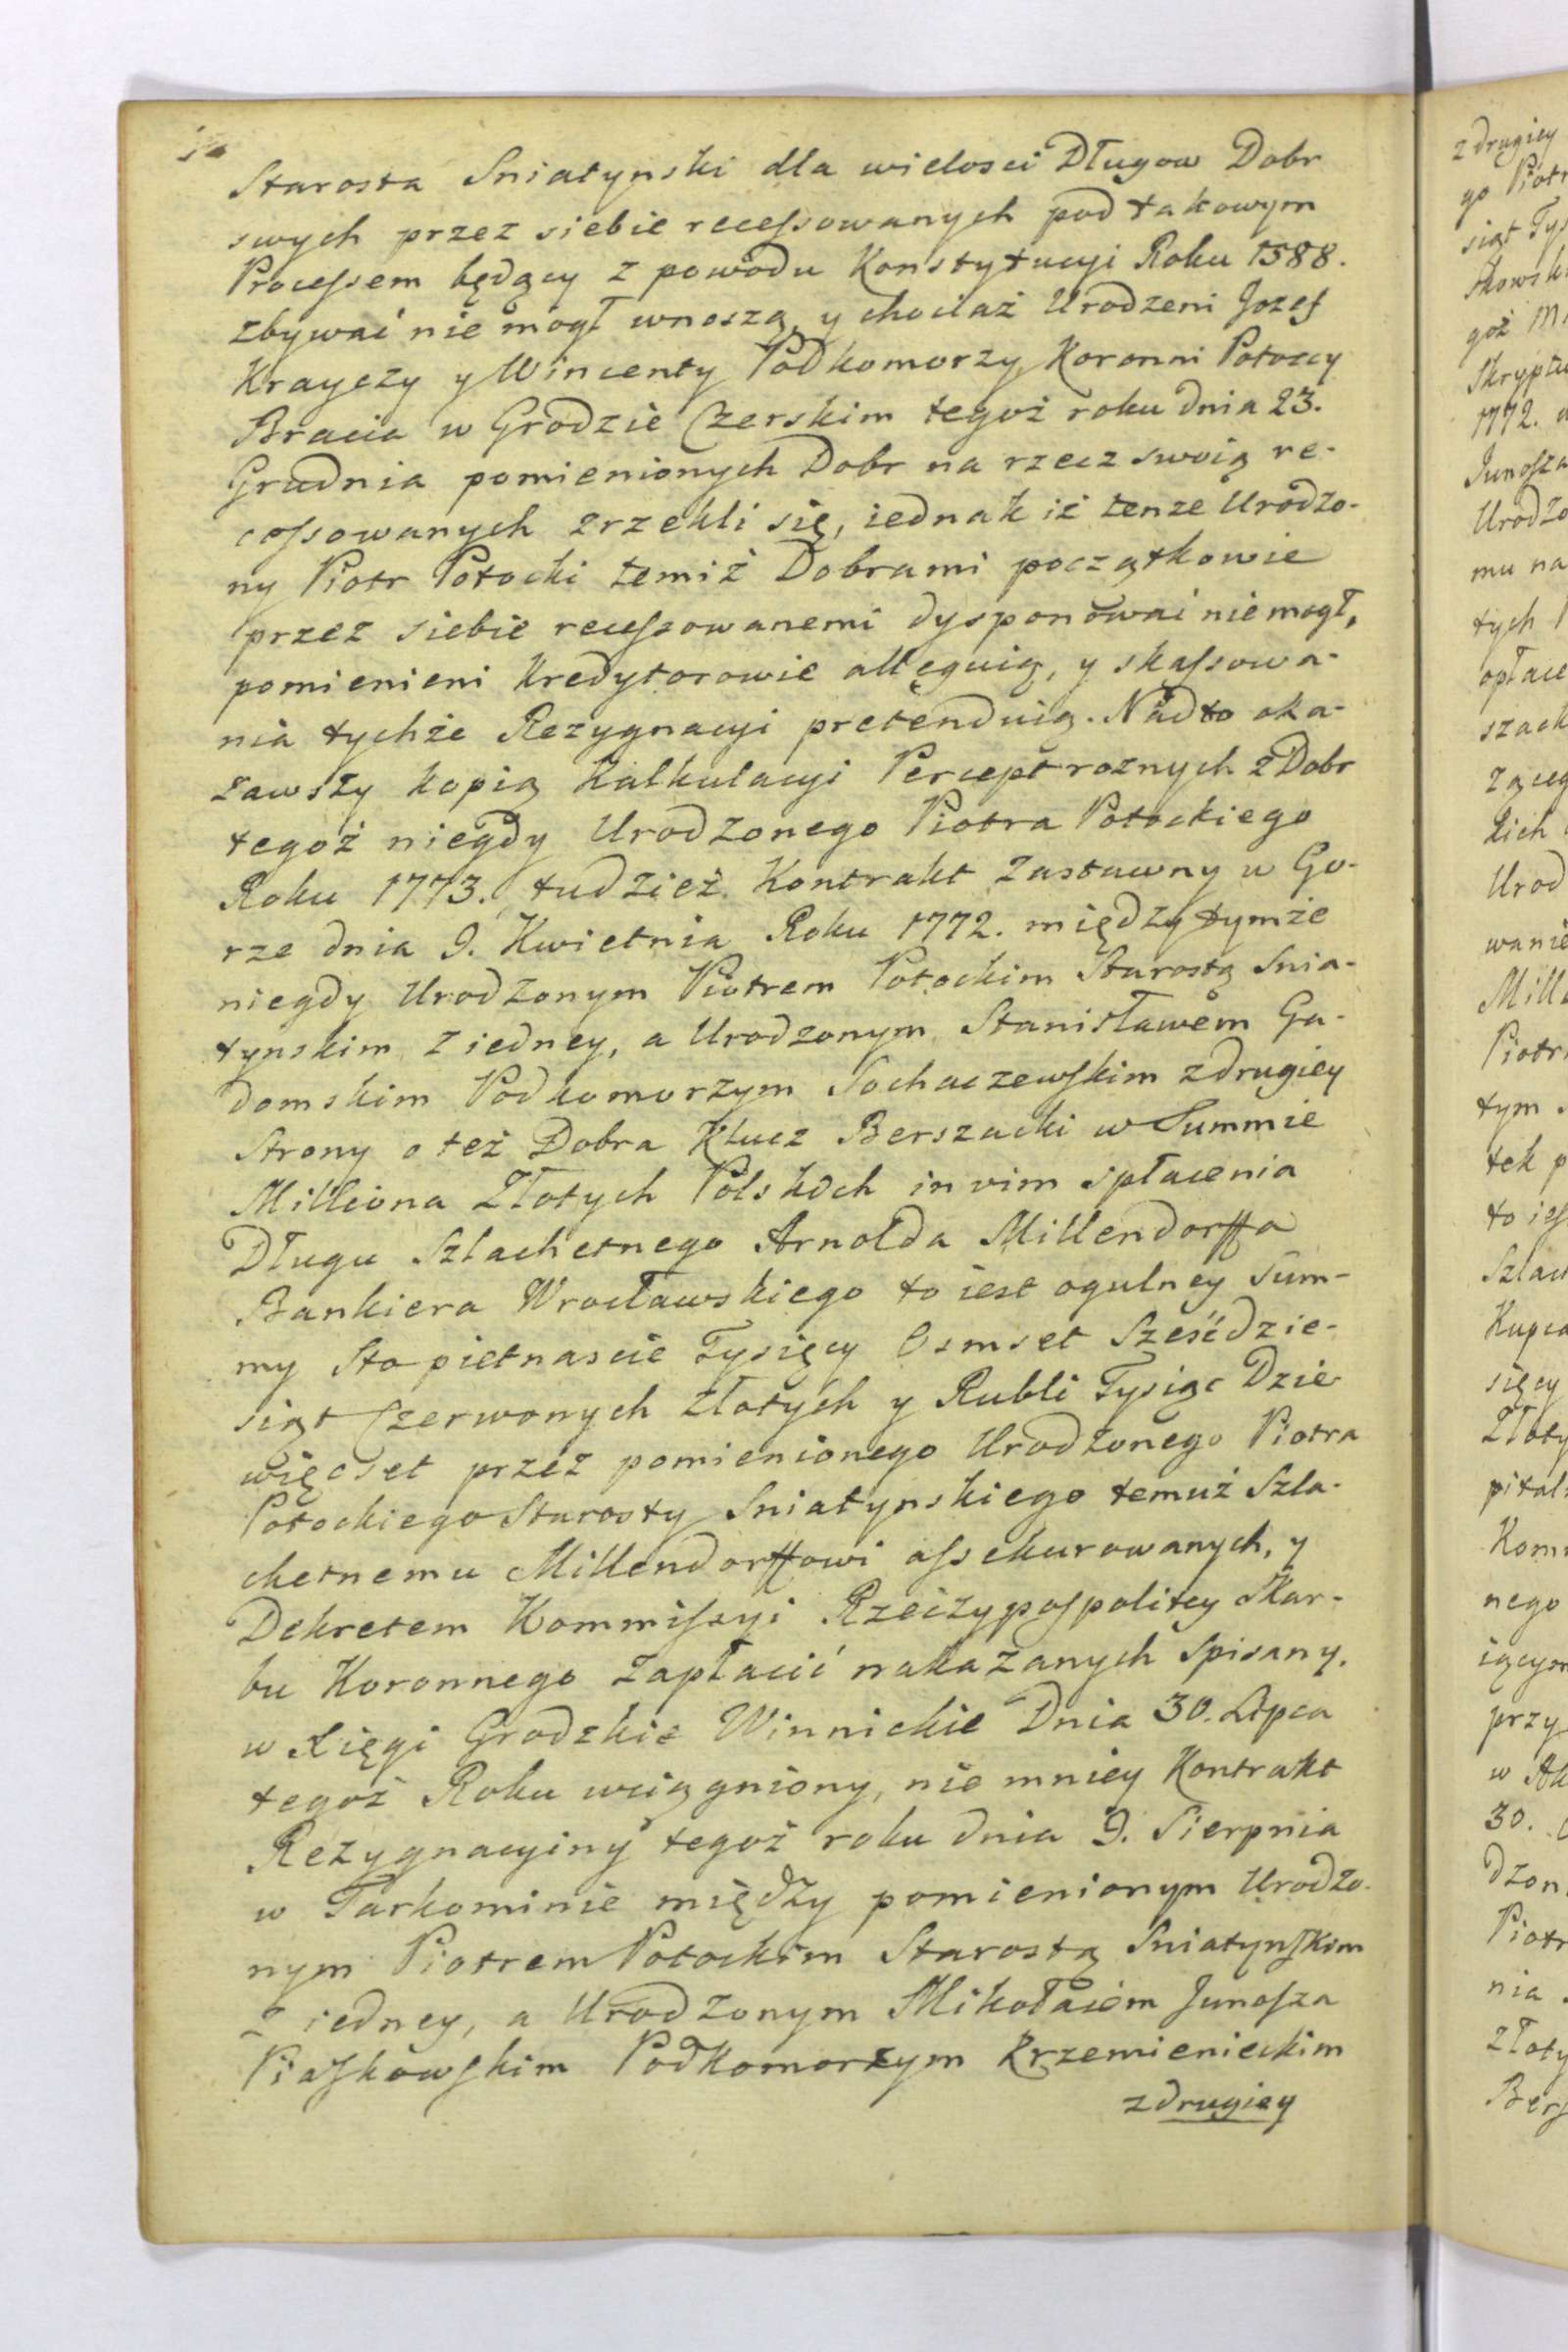 Starosta Sniatynski dla wielosci Długow Dobr
swych przez siebie recessowanych pod takowym
Processem będący z powodu Konstytucyi Roku 1588.
zbywać nie mogł wnoszą, y chociaż Urodzeni Jozef
Krayczy y Wincenty Podkomorzy Koronni Potoccy
Bracia w Grodzie Czerskim tegoż roku dnia 23.
Grudnia pomienionych Dobr na rzecz swoią re-
cessowanych zrzekli się, iednak iż tenże Urodzo-
ny Piotr Potocki temiż Dobrami początkowie
przez siebie recessowanemi dysponować nie mogł,
pomienieni Kredytorowie alleguią, y skassowa-
nia tychże Rezygnacyi pretenduią. Nadto oka-
zawszy kopią Kalkulacyi Percept roznych z Dobr
tegoż niegdy Urodzonego Piotra Potockiego
Roku 1773. tudzież Kontrakt Zastawny w Go-
rze dnia 9. Kwietnia Roku 1772. między tymże
niegdy Urodzonym Piotrem Potockim Starostą Snia-
tynskim z iedney, a Urodzonym Stanisławem Ga-
domskim Podkomorzym Sochaczewskim z drugiey
Strony o też Dobra Klucz Berszacki w Summie
Milliona Złotych Polskich in vim spłacenia
Długu Szlachetnego Arnolda Millendorffa
Bankiera Wrocławskiego to iest ogulney Sum-
my Sto pietnascie Tysięcy Osmset Sześćdzie-
siąt Czerwonych Złotych y Rubli Tysiąc Dzie-
więcset przez pomienionego Urodzonego Piotra
Potockiego Starosty Sniatynskiego temuż Szla-
chetnemu Millendorffowi assekurowanych, y
Dekretem Kommissyi Rzeczypospolitey Skar-
bu Koronnego zapłacić nakazanych spisany.
w Xięgi Grodzkie Winnickie Dnia 30. Lipca
tegoż Roku wciągniony, nie mniey Kontrakt
Rezygnacyiny tegoż roku dnia 9. Sierpnia
w Tarkominie między pomienionym Urodzo-
nym Piotrem Potockim Starostą Sniatynskim
z iedney, a Urodzonym Mikołaiem Junosza
Piaskowskim Podkomorzym Krzemienieckim
z drugiey
z drugiey
go Piotr
siąt Tys
skowsk
goż
Skryptu
1772.
Junosza
Urodzo
mu na
tych
opłace
szack
ząceg
kich
Urod
wanie
Mill
Piotr
tym
tek p
to ies
Szlac
Kupca
sięcy
Złoty
pital
Kom
nego
iącym
przy
w Ak
30.
dzon
Piotr
nia
złoty
Bers